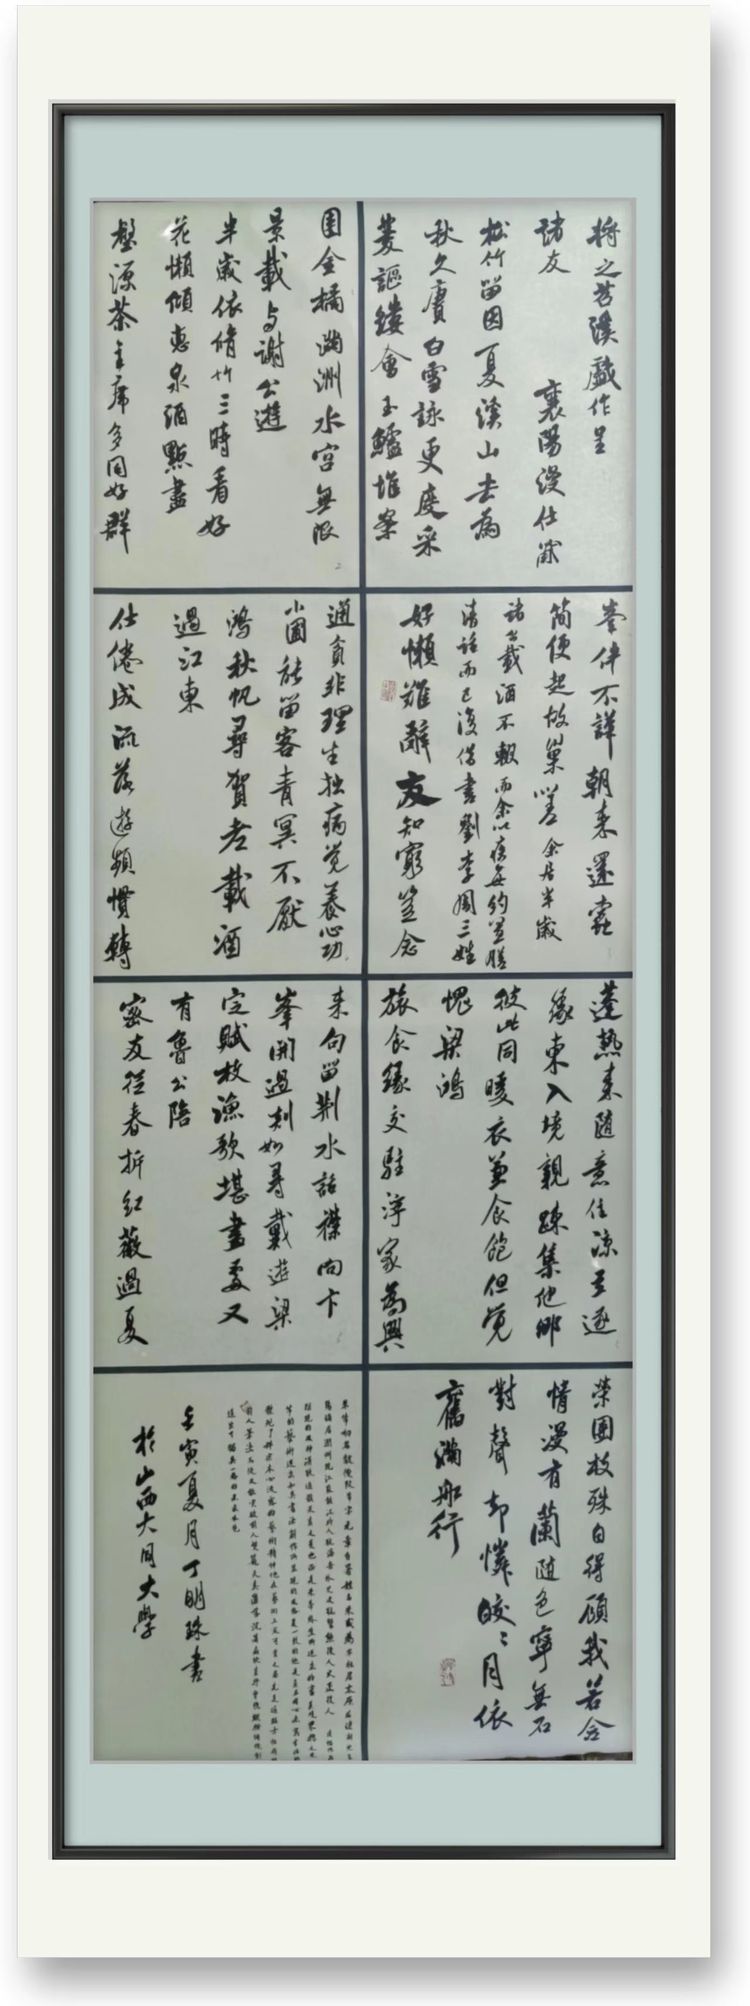 將之苕溪戲作呈
諸友 襄陽漫仕黻
松竹留因夏溪山去為
秋久賡白雪詠更度采
菱謳縷會玉鱸堆案
團金橘滿洲水宮無限
景載与謝公遊
半歲依脩竹三時看好
花懶傾惠泉酒點盡
壑源茶主席多同好群
峯伴不譁朝來還蠹
簡便起故巢嗟余居半歲
諸公載酒不輟而余以疾每約置膳
清話而已復借書劉李周三姓
好懶難辭友知窮豈念
通貧非理生拙病覺養心功
小圃能留客青冥不厭
鴻秋帆尋賀老載酒
過江東
仕倦成流落遊頻慣轉
蓬熱來隨意住涼至逐
緣東入境親疎集他鄉
彼此同暖衣兼食飽但覺
愧梁鴻
旅食緣交駐浮家為興
來句留荊水話襟向卞
峯開過剡如尋戴遊梁
定賦枚漁歌堪畫處又
有魯公陪
密友從春拆紅薇過夏
榮團枝殊自得顧我若含
情漫有蘭隨色寧無石
對聲却憐皎〻月依
舊滿船行
壬寅夏月丁明珠書
於山西大同大學